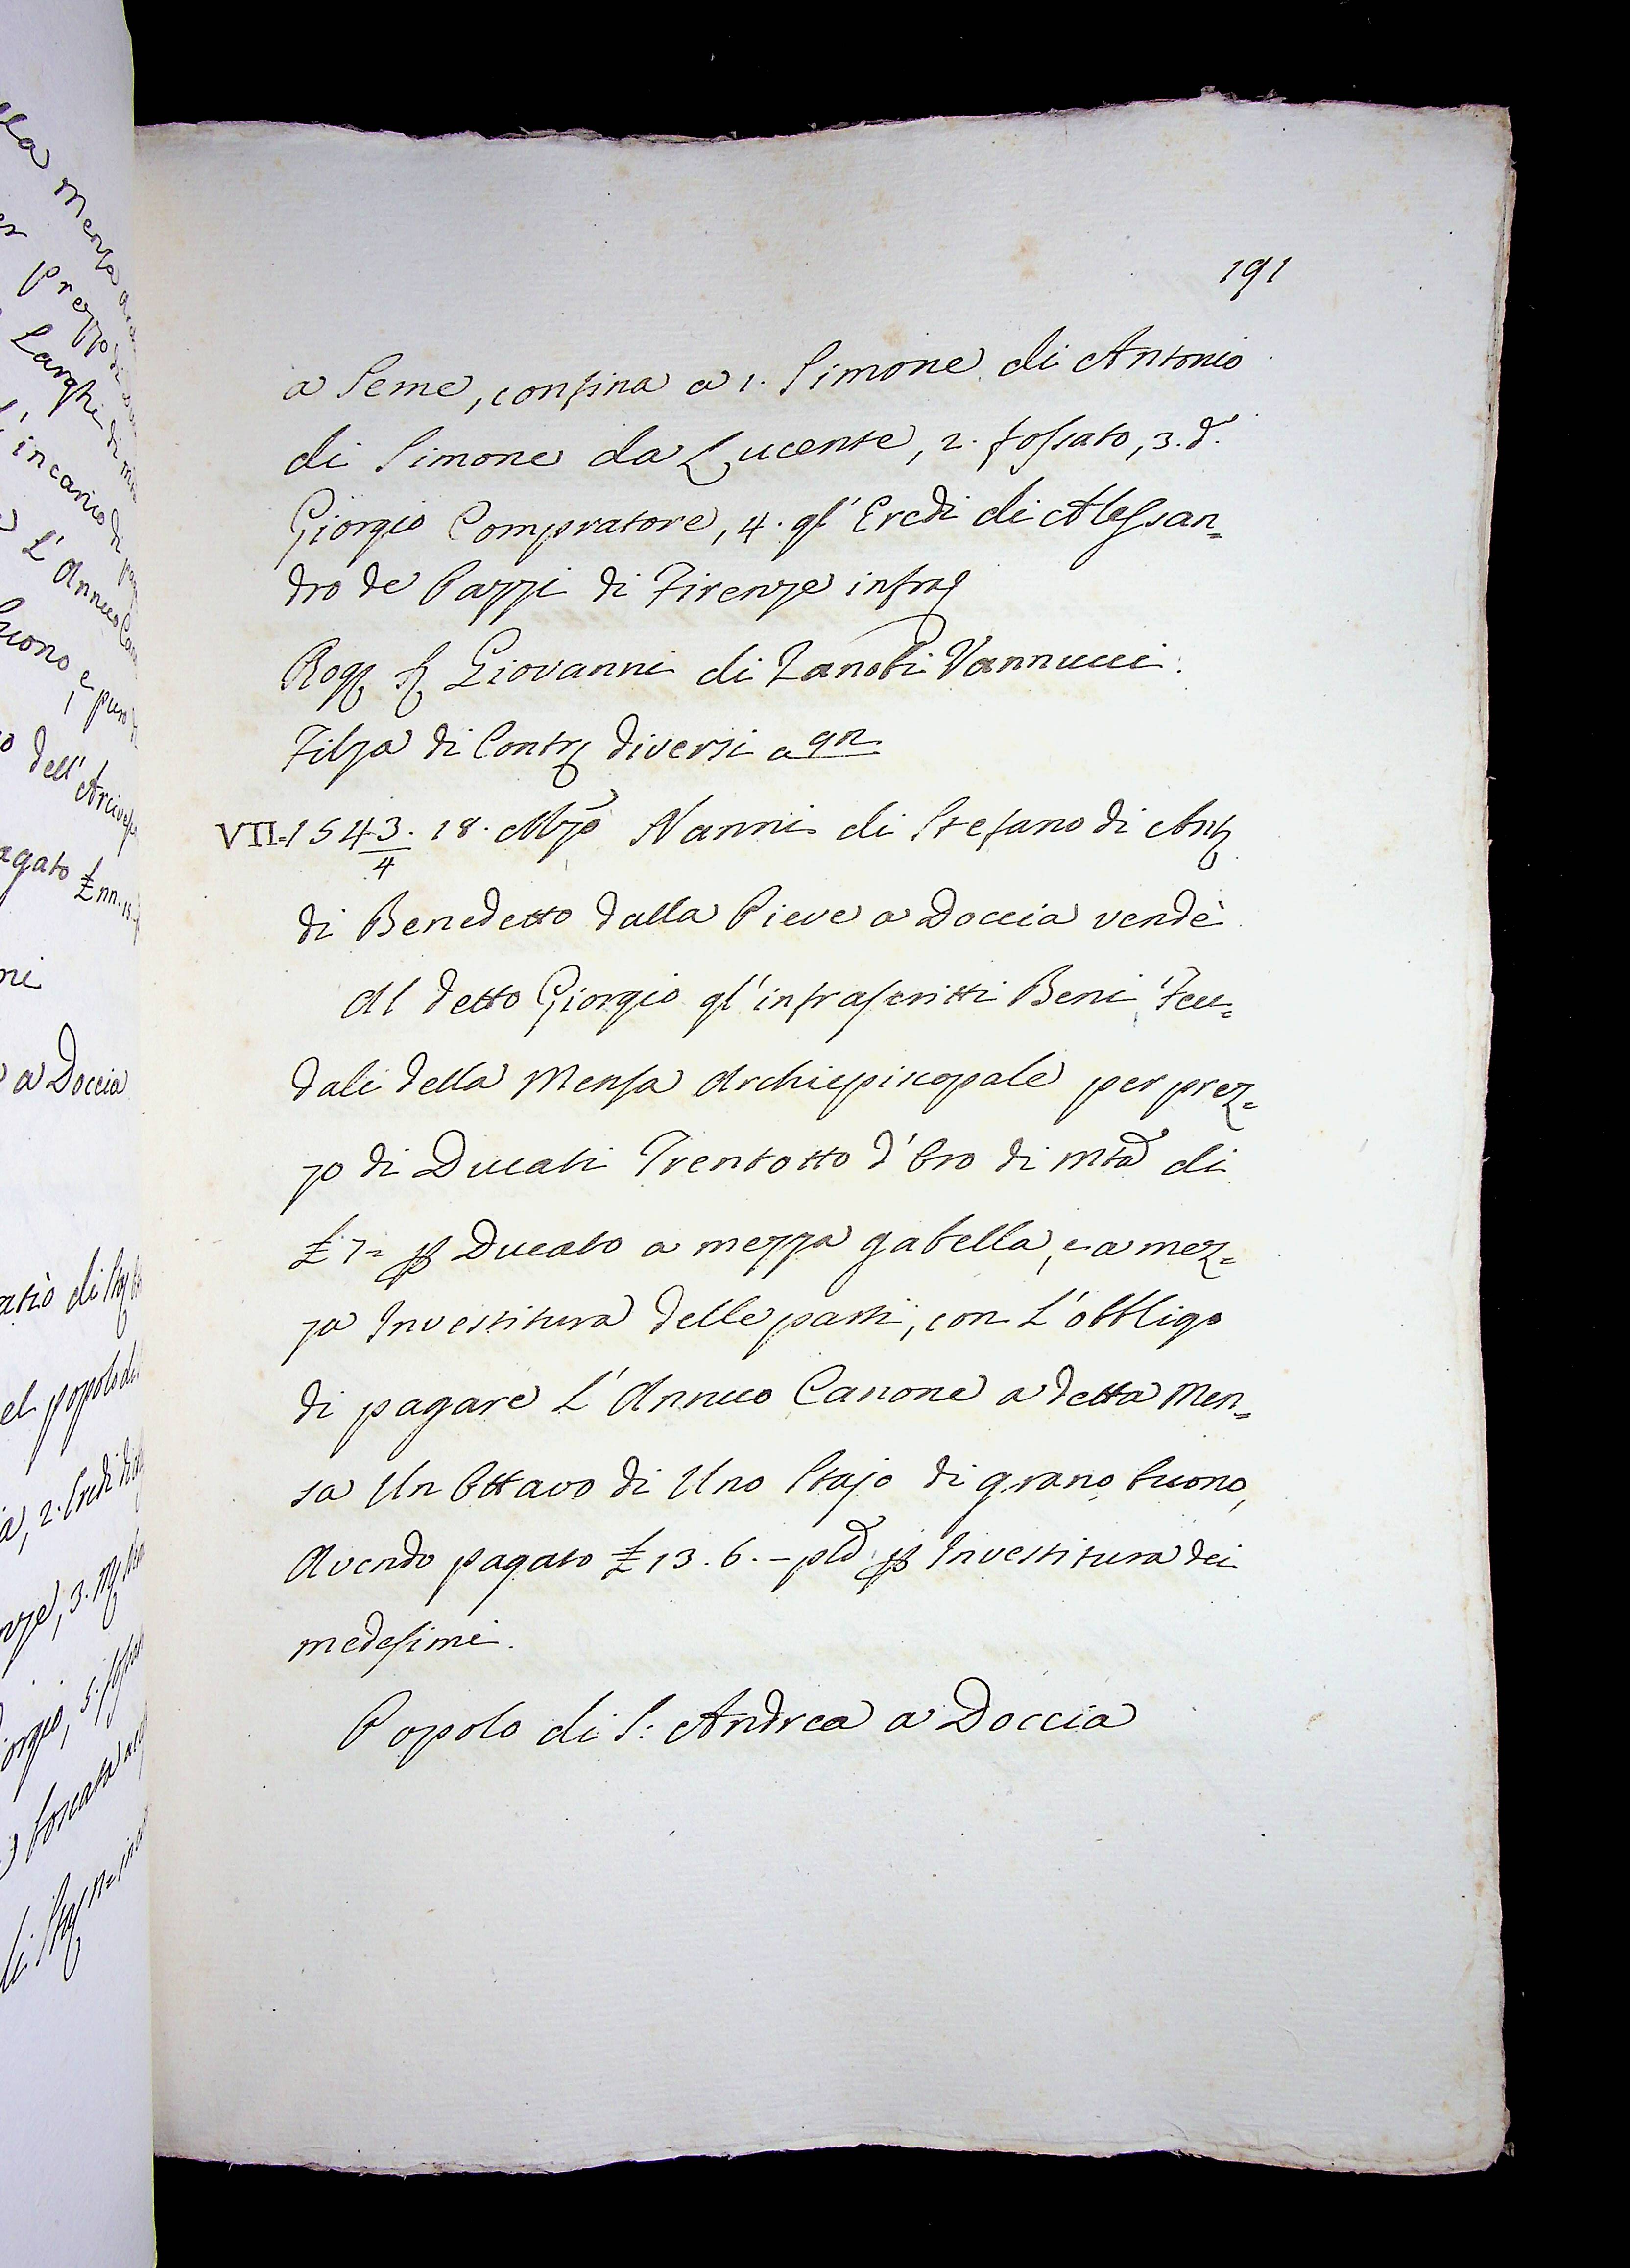 191
a Seme, confina a 1. Simone di Antonio
di Simone da Lucente, 2. fossato, 3. d.
Giorgio Compratore, 4. gl' Eredi di Alessan=
dro de Pazzi di Firenze infra
Rog Giovanni di Zanobi Vannucci.
Filza di Contr diversi a
VII. 1543/4. 18. Mzo Nanni di Stefano di Ant
di Benedetto dalla Pieve a Doccia vendè
Al detto Giorgio gl' infrascritti Beni Feu=
dali della Mensa Archiepiscopale per prez=
zo di Ducati Trentotto d'Oro di mta di
£ 7= p Ducato a mezza gabella, e a mez=
za Investitura delle parti, con L'obbligo
di pagare L'Annuo Canone a detta Men=
sa Un Ottavo di Uno Stajo di grano buono,
Avendo pagato £ 13. 6. – p Investitura dei
medesimi.
Popolo di S: Andrea a Doccia